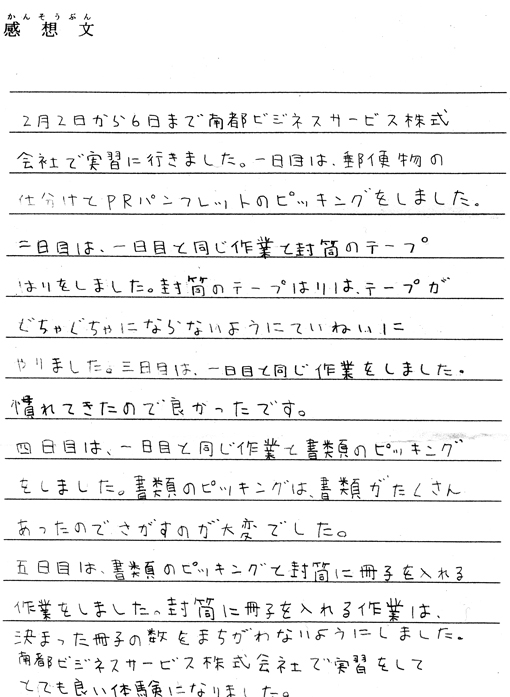 かんそうぶん
感想文
2月2日から6日まで南都ビジネスサービス株式
会社で実習に行きました。一日目は、郵便物の
仕分けとPRパンフレットのピッキングをしました。
二日目は、一日目と同じ作業と封筒のテープ
はりをしました。封筒のテープはりは、テープが
ぐちゃぐちゃにならないようにていねいに
やりました。三日目は、一日目と同じ作業をしました。
慣れてきたので良かったです。
四日目は、一日目と同じ作業と書類のピッキング
をしました。書類のピッキングは、書類がたくさん
あったのでさがすのが大変でした。
五日目は、書類のピッキングと封筒に冊子を入れる
作業をしました。封筒に冊子を入れる作業は、
決まった冊子の数をまちがわないようにしました。
南都ビジネスサービス株式会社で実習をして
とても良い体験になりました。